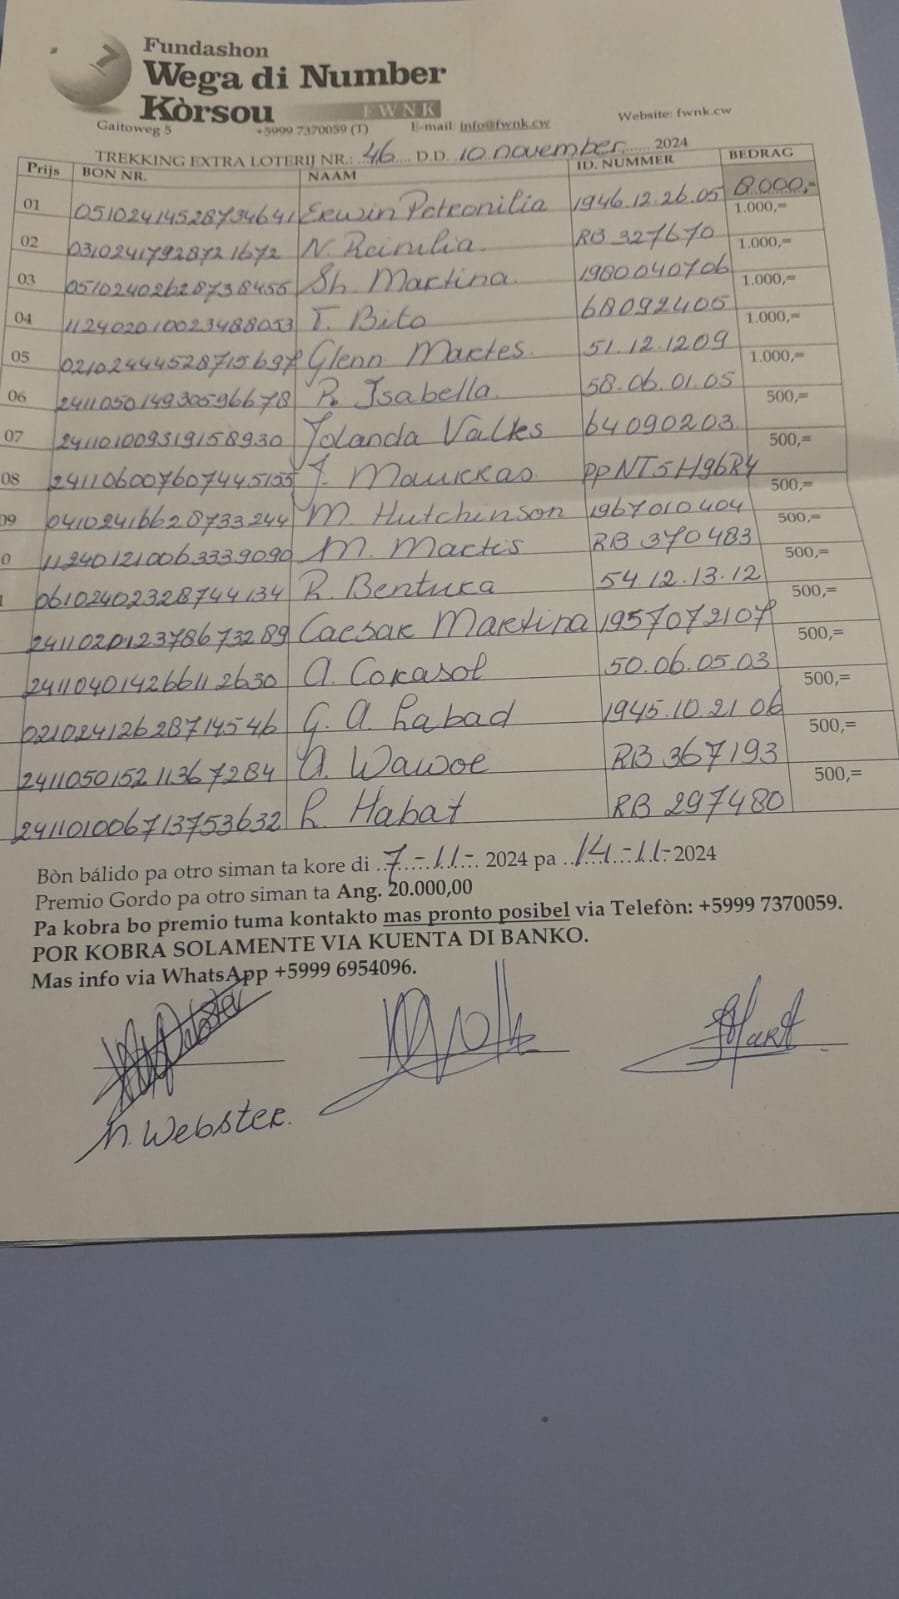 Fundashon
Wega di Number
Kòrsou
FWNK
Gaitoweg 5 +5999 7370059 (T) E-mail: info@fwnk.cw Website: fwnk.cw
TREKKING EXTRA LOTERIJ NR.: 46 D.D. 10 november 2024
Prijs BON NR. NAAM ID. NUMMER BEDRAG
01 05102414528734641 Erwin Petronilia 1946.12.26.05 8.000,-
02 0310241792872 1672 N. Reinilia RB 327670 1.000,=
03 05102402628738455 Sh. Martina 1980040706 1.000,=
04 112402010023488053 T. Bito 68092405 1.000,=
05 02102444528715697 Glenn Martes 51.12.1209 1.000,=
06 241105014930596678 R. Isabella 58.06.01.05 1.000,=
07 241101009319158930 Jolanda Valks 64090203 500,=
08 2411060076074455155 J. Maurkas PPNT5H96R4 500,=
09 04102416628733244 M. Hutchinson 1967010404 500,=
0 1124012100633390 90 M. Martis RB 370483 500,=
1 06102402328744134 R. Bentura 54 12.13.12 500,=
2411020123786732 89 Caesar Martina 1957072107 500,=
2411040142661 12630 A. Corasol 50.06.05.03 500,=
02102412628714546 G. A. Labad 1945.10.21 06 500,=
2411050152113672 84 A. Wawoe RB 367193 500,=
2411010067137536 32 R. Habat RB 297480 500,=
500,=
Bòn bálido pa otro siman ta kore di 7-11- 2024 pa 14-11-2024
Premio Gordo pa otro siman ta Ang. 20.000,00
Pa kobra bo premio tuma kontakto mas pronto posibel via Telefòn: +5999 7370059.
POR KOBRA SOLAMENTE VIA KUENTA DI BANKO.
Mas info via WhatsApp +5999 6954096.
N. Webster.